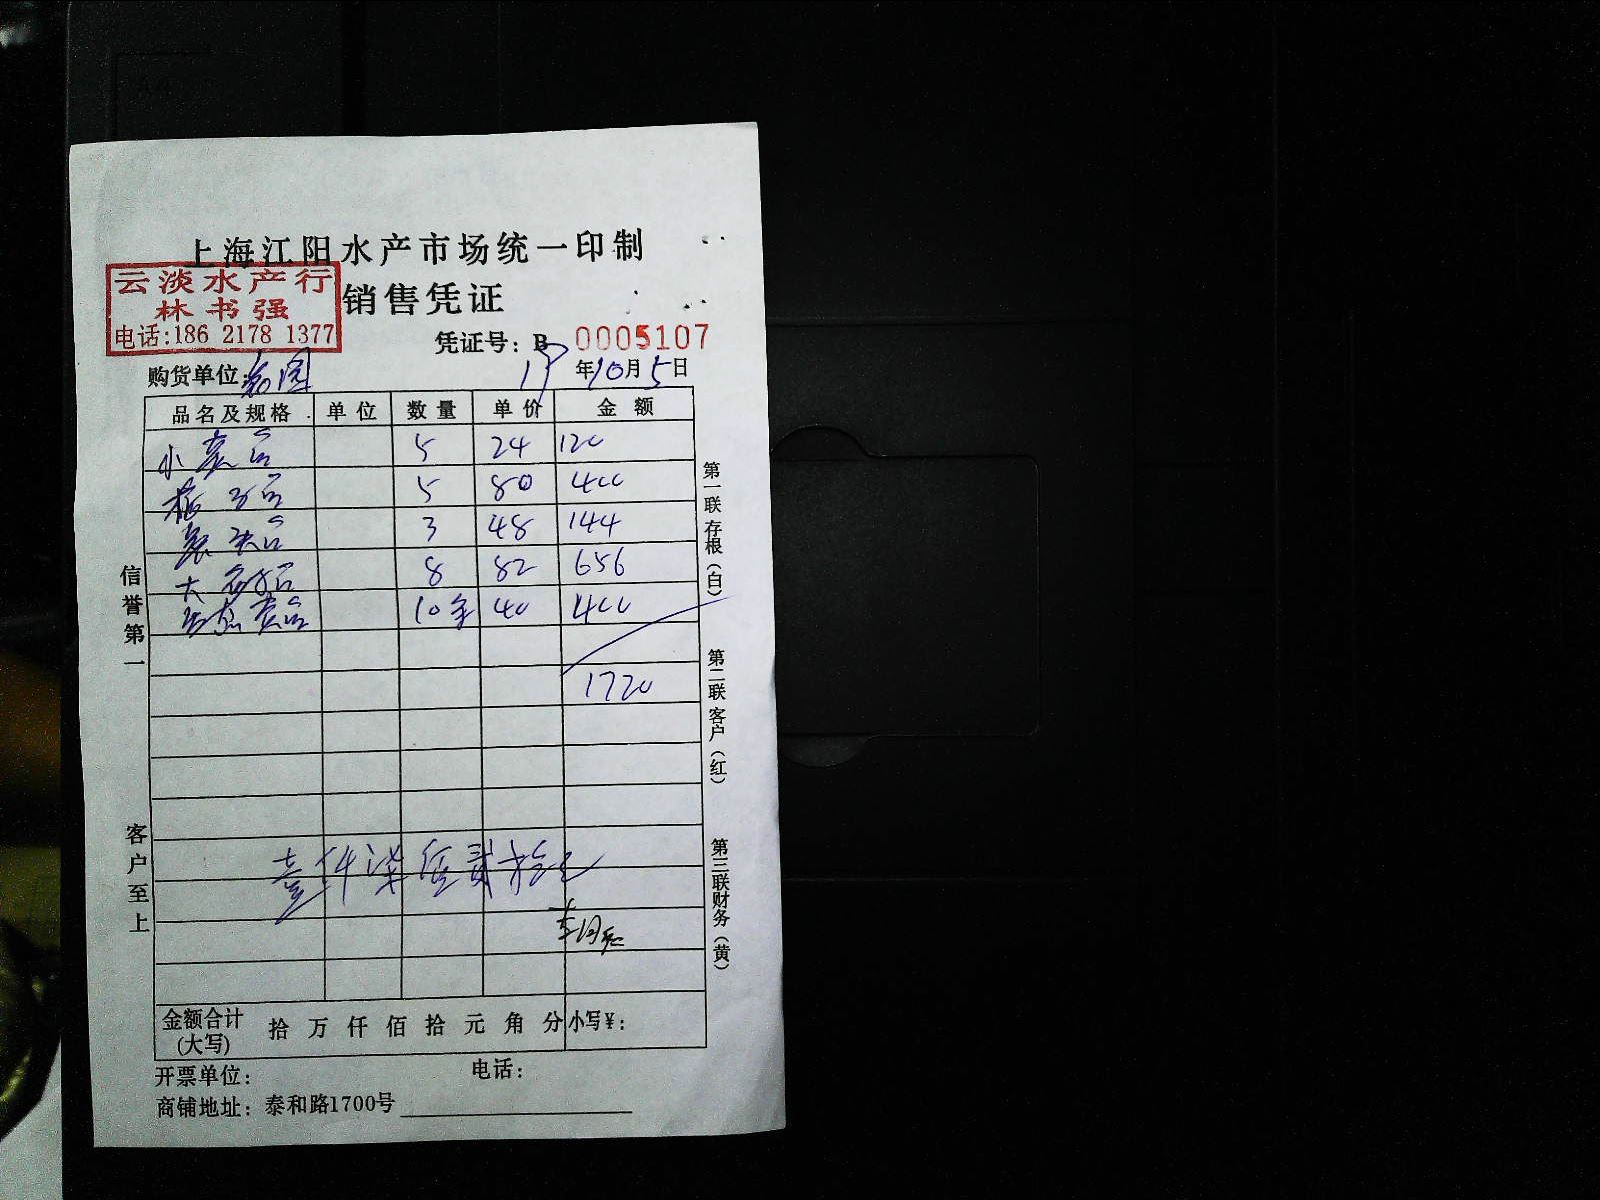 上海江阳水产市场统一印制
云淡水产行
林书强
电话:186 2178 1377
销售凭证
凭证号: B 0005107
购货单位:
19年10月5日
品名及规格 单位 数量 单价 金额
小 5 24 120
5 80 400
3 48 144
大 8 82 656
10 40 400
1720
壹仟柒佰贰拾元
金额合计(大写) 拾 万 仟 佰 拾 元 角 分 小写¥:
开票单位: 电话:
商铺地址: 泰和路1700号
信誉第一
客户至上
第一联存根(白)
第二联客户(红)
第三联财务(黄)